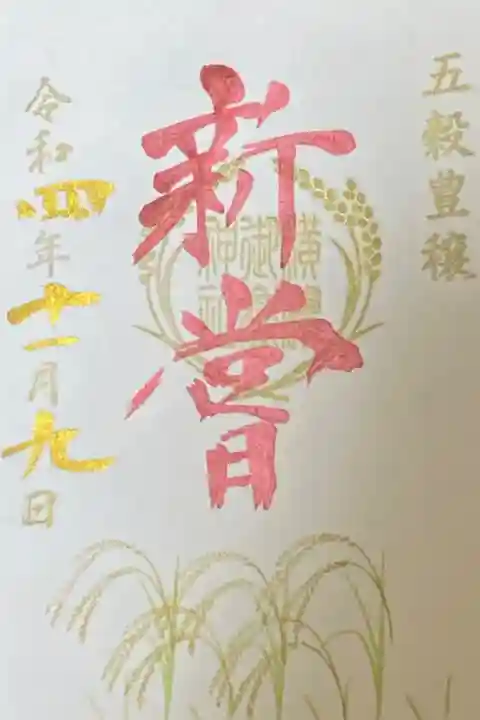 五穀豊穣
新嘗
神社
令和四年十一月九日